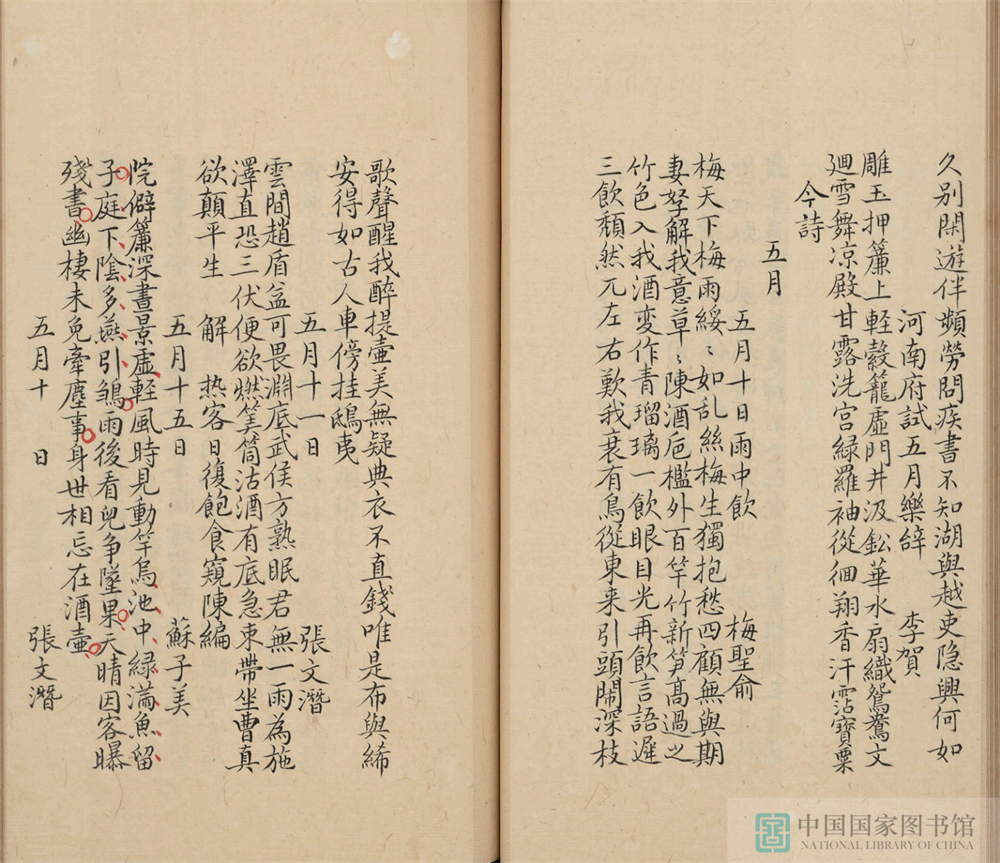 久别閑遊伴頻勞問疾書不知湖與越吏隐興何如
河南府試五月樂辞 李賀
雕玉押簾上輕縠籠虛門井汲鈆華水扇織鴛鴦文
廻雪舞凉殿甘露洗宮緑羅袖從徊翔香汗霑寶粟
今詩
五月
五月十日雨中飲 梅聖俞
梅天下梅雨綏〻如乱絲梅生獨抱愁四顧無與期
妻孥解我意草〻陳酒巵檻外百竿竹新笋髙過之
竹色入我酒変作青瑠璃一飲眼目光再飲言語遲
三飲頹然兀左右歎我衰有鳥從東来引頭閙深枝
歌聲醒我醉提壷美無疑典衣不直錢唯是布與絺
安得如古人車傍挂鴟夷
五月十一日 張文潛
雲間趙盾益可畏淵底武侯方熟眠君無一雨為施
澤直恐三伏便欲燃筀筒沽酒有底急束帶坐曹真
欲顛平生 解 热客日復飽食窺陳編
五月十五日 蘇子美
院僻簾深晝景虛輕風時見動竿烏池中緑滿魚留
子庭下陰多燕引鶵雨後看兒争墜果天晴因客曝
殘書幽棲未免牽塵事身世相忘在酒壷
五月十 日 張文潛
中国国家图书馆
NATIONAL LIBRARY OF CHINA